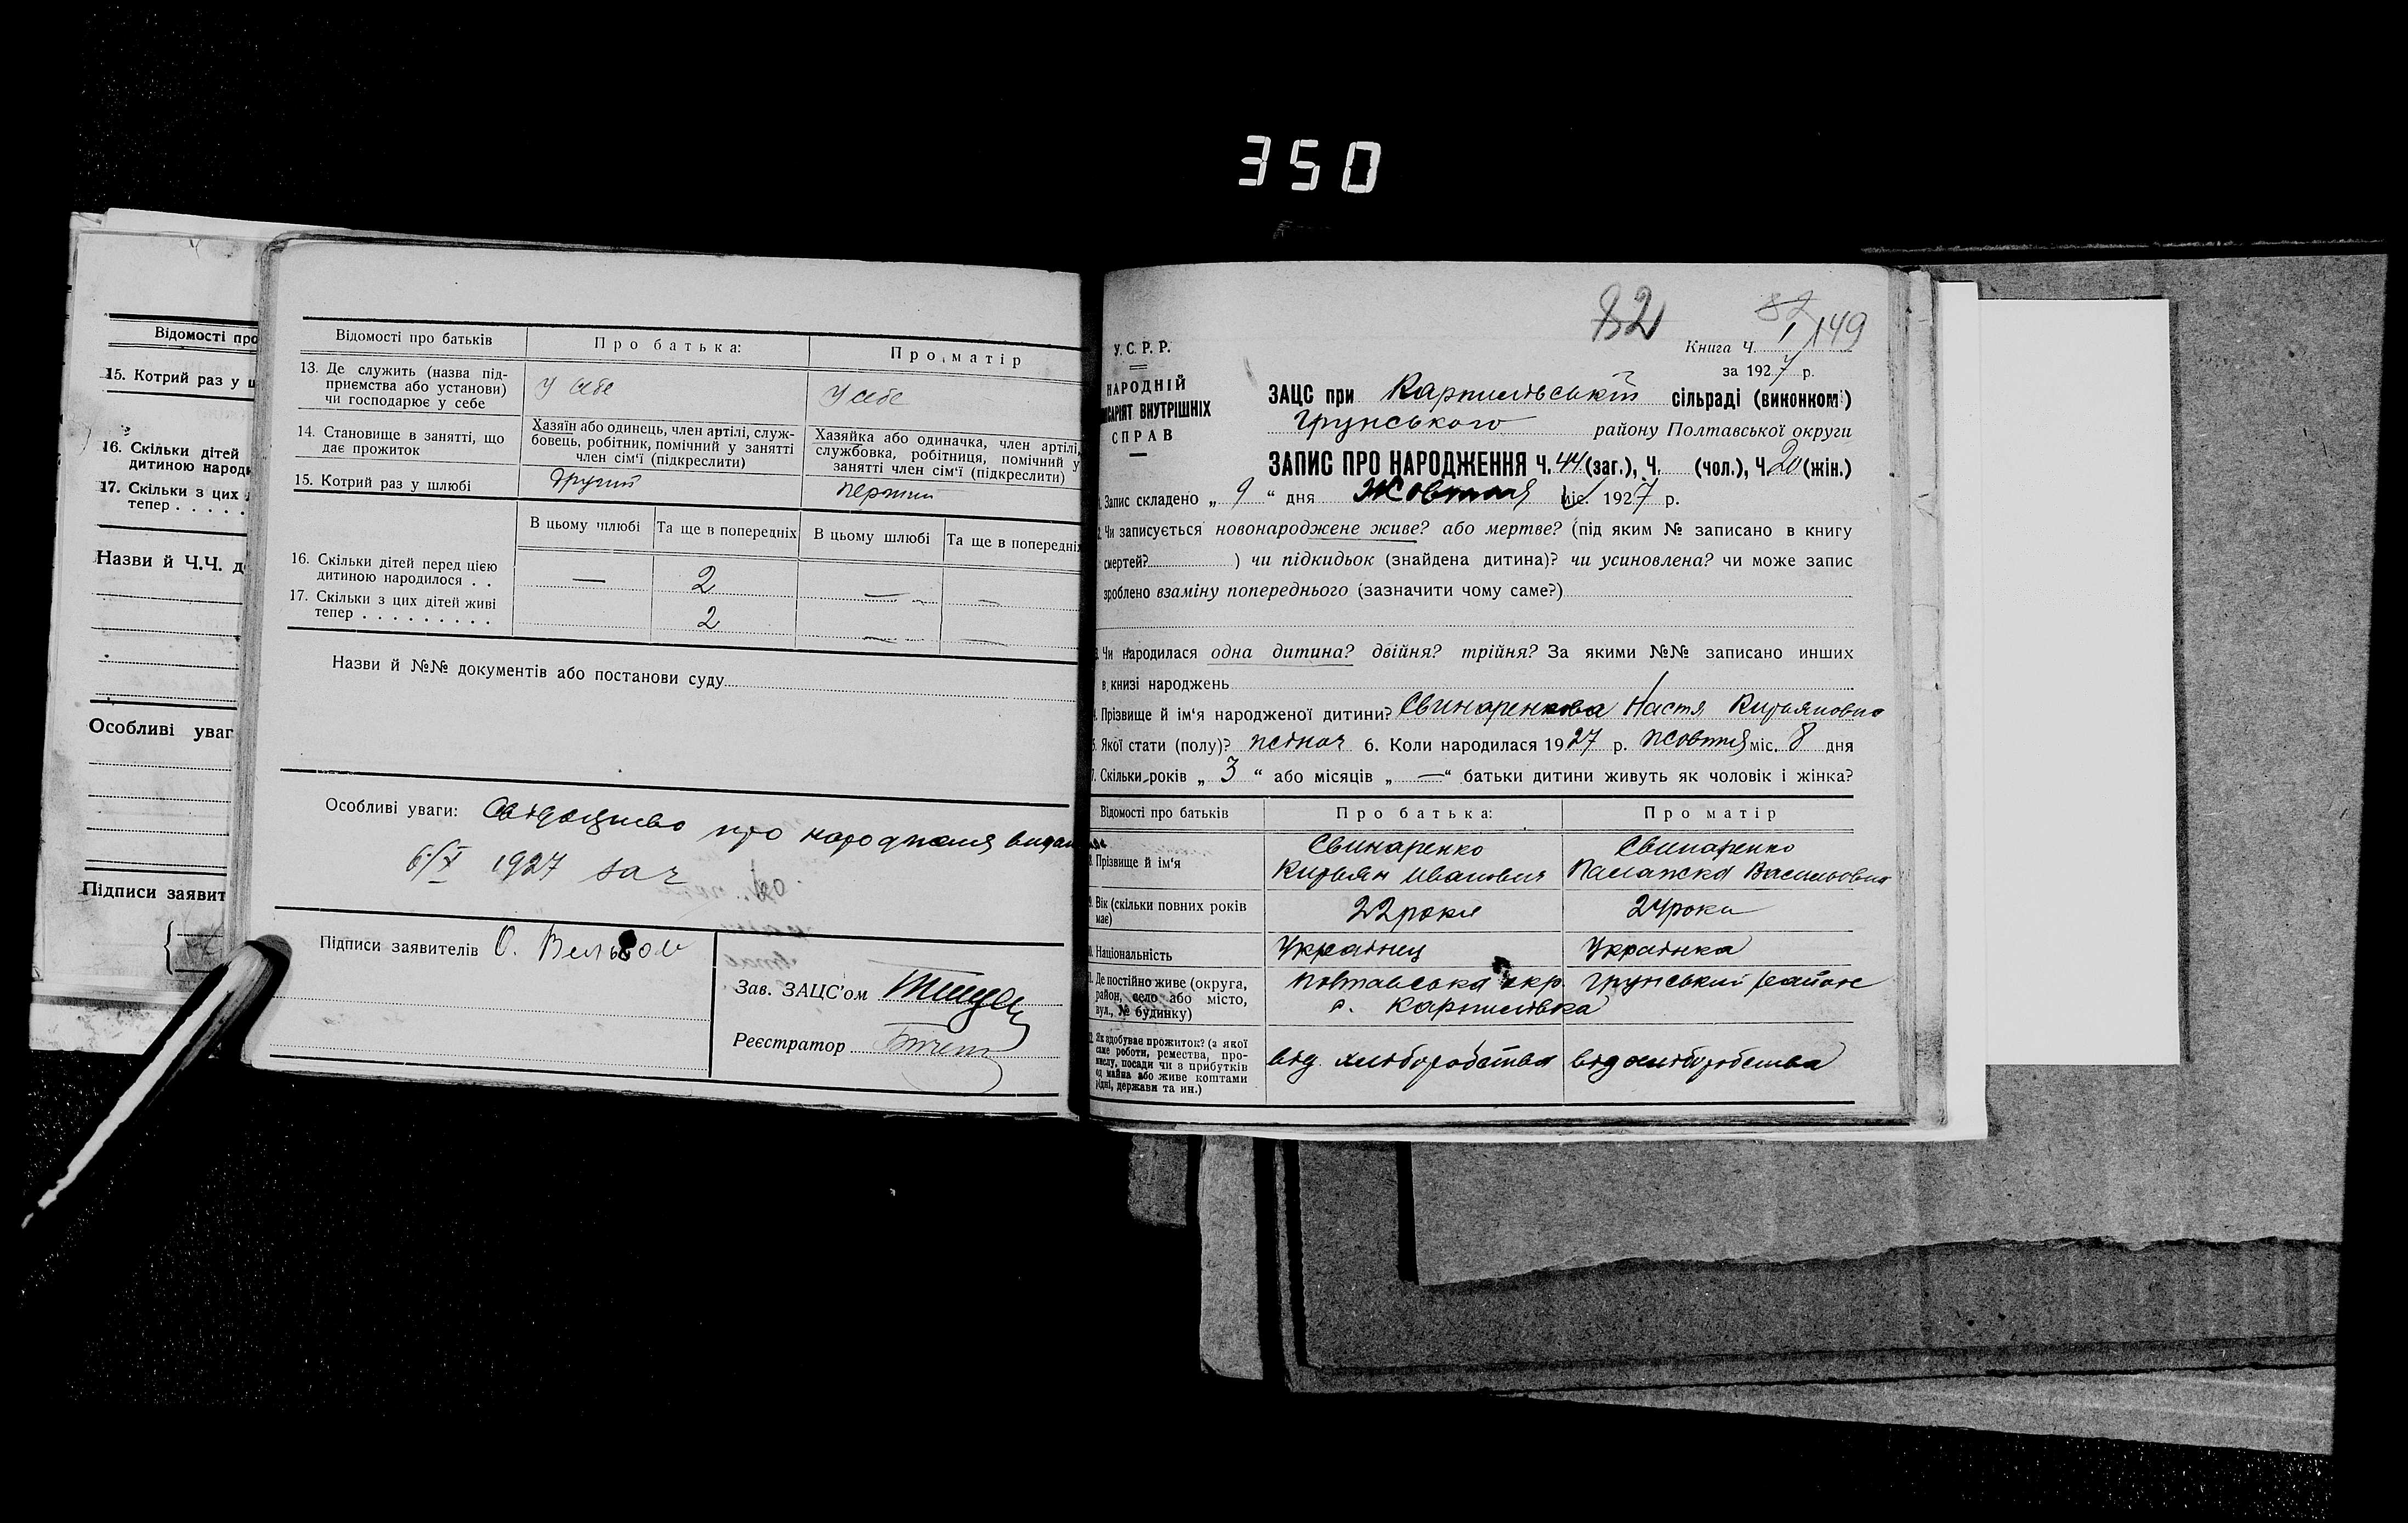 350
Відомості про
15. Котрий раз у ш
16. Скільки дітей
дитиною народи
17. Скільки з цих
тепер . . . . .
Назви й Ч.Ч. д
Особливі уваг
Підписи заявит
Відомості про батьків
Про батька:
Про матір
13. Де служить (назва під-
приємства або установи)
чи господарює у себе
у себе
у себе
14. Становище в занятті, що
дає прожиток
Хазяїн або одинець, член артілі, служ-
бовець, робітник, помічний у занятті
член сім'ї (підкреслити)
Хазяйка або одиначка, член артілі,
службовка, робітниця, помічний у
занятті член сім'ї (підкреслити)
15. Котрий раз у шлюбі
другий
перший
В цьому шлюбі
Та ще в попередніх
В цьому шлюбі
Та ще в попередніх
16. Скільки дітей перед цією
дитиною народилося . .
— 2 — —
17. Скільки з цих дітей живі
тепер . . . . . . . . .
2 — —
Назви й №№ документів або постанови суду
Особливі уваги: Свідоцтво про народження видан
6/X 1927 за ч
Підписи заявителів О.
Зав. ЗАЦС'ом
Реєстратор
82
82
149
У. С. Р. Р.
НАРОДНІЙ
ІСАРІЯТ ВНУТРІШНІХ
СПРАВ
Книга Ч. 1
за 1927 р.
ЗАЦС при Карпилівській сільраді (виконком)
Грунського району Полтавської округи
ЗАПИС ПРО НАРОДЖЕННЯ Ч. 44 (заг.), Ч. (чол.), Ч. 20 (жін.)
1. Запис складено „ 9 “ дня Жовтня міс. 1927 р.
2. Чи записується новонароджене живе? або мертве? (під яким № записано в книгу
смертей? ) чи підкидьок (знайдена дитина)? чи усиновлена? чи може запис
зроблено взаміну попереднього (зазначити чому саме?)
3. Чи народилася одна дитина? двійня? трійня? За якими №№ записано инших
в книзі народжень
4. Прізвище й ім'я народженої дитини? Свинаренкова Настя Кирьяновна
5. Якої стати (полу)? жіноч 6. Коли народилася 1927 р. жовтня міс. 8 дня
7. Скільки років „ 3 “ або місяців „ — “ батьки дитини живуть як чоловік і жінка?
Відомості про батьків
Про батька:
Про матір
8. Прізвище й ім'я
Свинаренко
Кирьян Иванович
Свинаренко
Палажка Васильовна
9. Вік (скільки повних років
має)
22 роки
24 роки
10. Національність
Українец
Українка
11. Де постійно живе (округа,
район, село або місто,
вул., № будинку)
Полтавська окр. Грунський районе
с. Карпилівка
12. Як здобуває прожиток? (з якої
саме роботи, ремества, про-
мислу, посади чи з прибутків
од майна або живе коштами
рідні, держави та ин.)
від хліборобства
від хліборобства